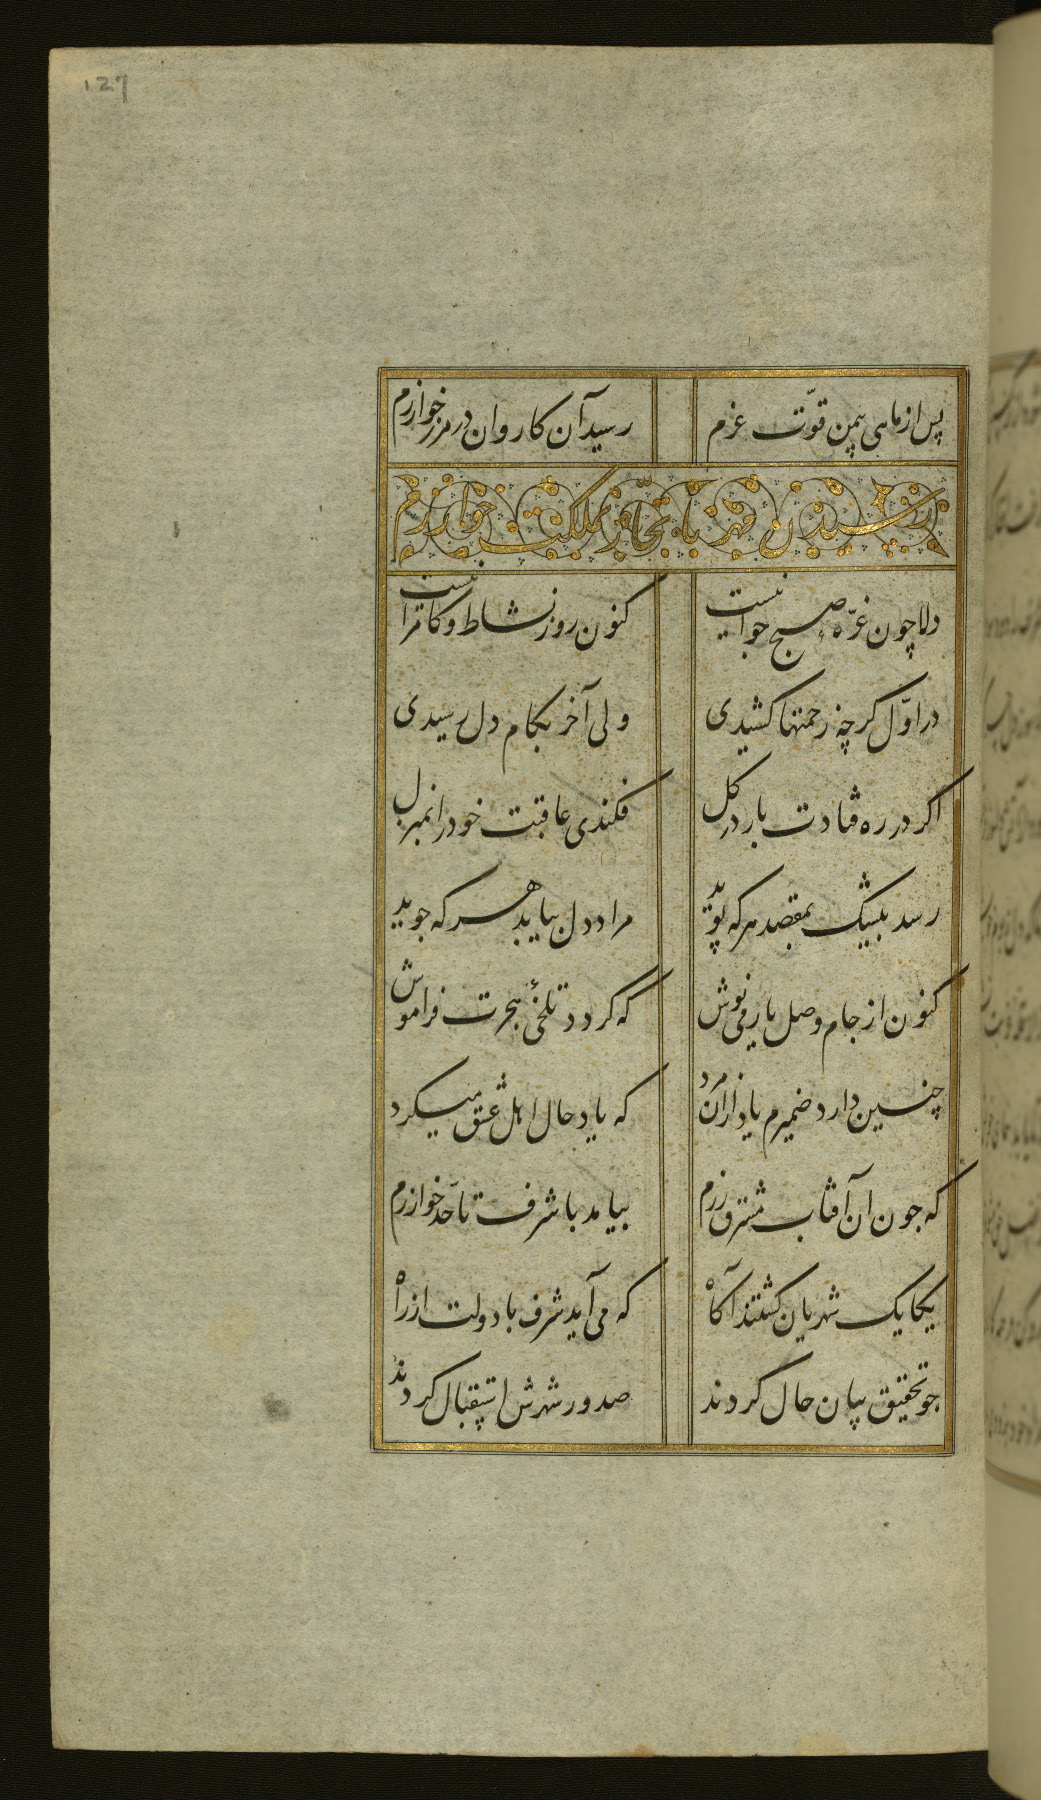 127
پس از ماهی بیمن قوّت عزم رسید آن کاروان در مرز خوارزم
رسیدن مهر با تجّار بمملکت خوارزم
دلا چون غرّه صبح جوانیست کنون روز نشاط و کامرانیست
در اوّل کرچه زحمتها کشیدی ولی آخر بکام دل رسیدی
اکر در ره فتادت بار در کل فکندی عاقبت خود را بمنزل
رسد بیشک بمقصد هر که پوید مراد دل بیابد هر که جوید
کنون از جام وصل یار می نوش که کردد تلخیٔ هجرت فراموش
چنین دارد ضمیرم یاد از آن مرد که یاد حال اهل عشق میکرد
که چون آن آفتاب مشرق رزم بیامد با شرف تا حدّ خوارزم
یکایک شهریان کشتند آکاه که می آید شرف با دولت از راه
چو تحقیق بیان حال کردند صدور شهرش استقبال کردند